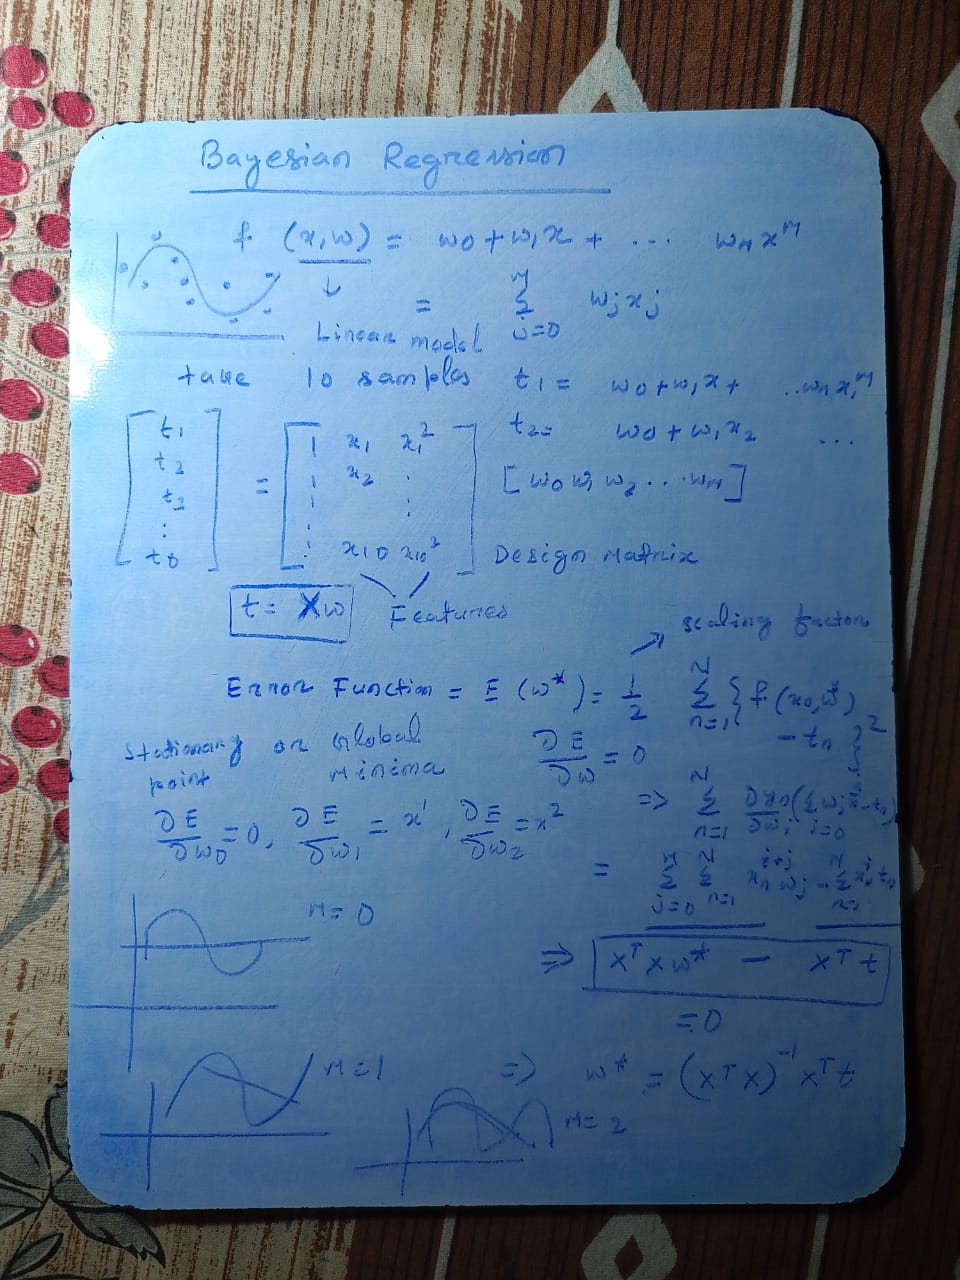 Bayesian Regression
f (x,w) = w0 + w1x + ... wMx^M
↓ = M Σ j=0 wjxj
Linear model
take 10 samples t1 = w0+w1x+ ..wMx1^M
t2= w0 + w1x2 ...
[w0 w1 w2 ... wM]
t1
t2
t3
:
t0
=
1 x1 x1^2
x2
x10 x10^2
Design Matrix
t = Xw
Features
scaling factor
Error Function = E (w*) = 1/2 N Σ n=1 { f (xn,w*) - tn }^2
Stationary or Global
point Minima
∂E/∂w = 0
∂E/∂w0 = 0, ∂E/∂w1 = x^1, ∂E/∂w2 = x^2
=> N Σ n=1
= M Σ j=0 N Σ n=1 xn^i+j wj - N Σ n=1 xn^i tn
M=0
=> X^T X w* - X^T t
= 0
M=1
=> w* = (X^T X)^-1 X^T t
M=2